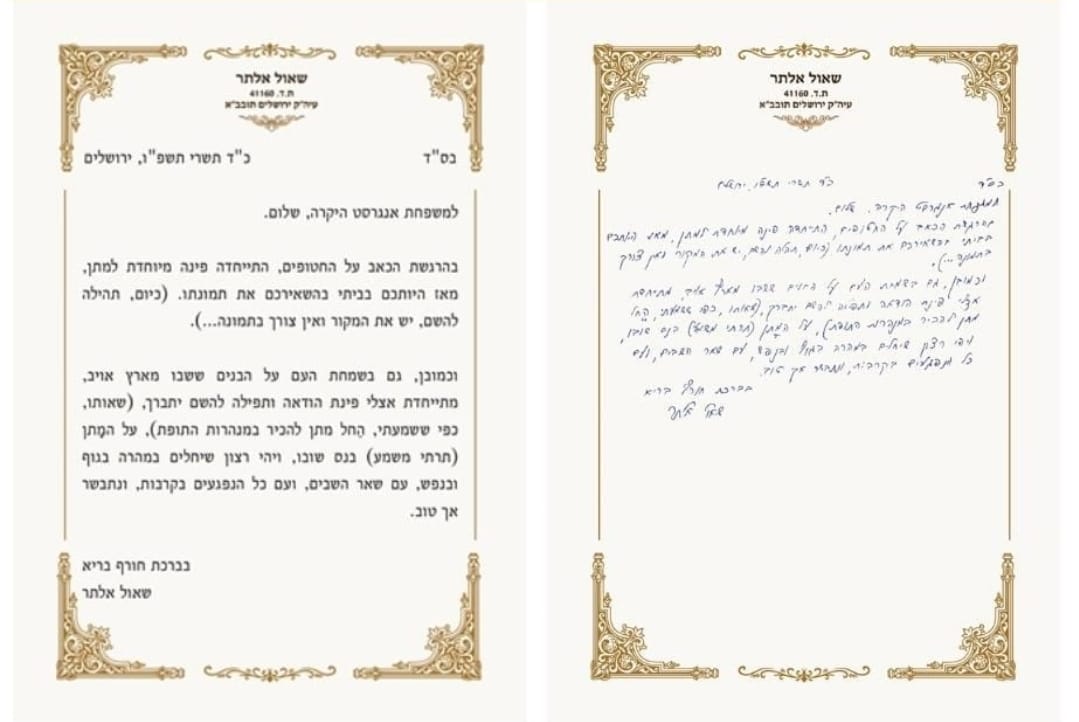 שאול אלתר
ת.ד. 41160
עיה"ק ירושלים תובב"א
בס"ד
כ"ד תשרי תשפ"ו, ירושלים
למשפחת אנגרסט היקרה, שלום.
בהרגשת הכאב על החטופים, התייחדה פינה מיוחדת למתן,
מאז היותכם בביתי בהשאירכם את תמונתו. (כיום, תהילה
להשם, יש את המקור ואין צורך בתמונה...).
וכמובן, גם בשמחת העם על הבנים ששבו מארץ אויב,
מתייחדת אצלי פינת הודאה ותפילה להשם יתברך, (שאותו,
כפי ששמעתי, הֵחל מתן להכיר במנהרות התופת), על המַתן
(תרתי משמע) בנס שובו, ויהי רצון שיחלים במהרה בגוף
ובנפש, עם שאר השבים, ועם כל הנפגעים בקרבות, ונתבשר
אך טוב.
בברכת חורף בריא
שאול אלתר
שאול אלתר
ת.ד. 41160
עיה"ק ירושלים תובב"א
בס"ד
כ"ד תשרי תשפ"ו, ירושלים
למשפחת אנגרסט היקרה, שלום.
בהרגשת הכאב על החטופים, התייחדה פינה מיוחדת למתן, מאז היותכם
בביתי בהשאירכם את תמונתו (כיום, תהלה להשם, יש את המקור ואין צורך
בתמונה...).
וכמובן, גם בשמחת העם על הבנים ששבו מארץ אויב, מתייחדת
אצלי פינת הודאה ותפילה להשם יתברך, (שאותו, כפי ששמעתי, הֵחל
מתן להכיר במנהרות התופת), על המַתן (תרתי משמע) בנס שובו,
ויהי רצון שיחלים במהרה בגוף ובנפש, עם שאר השבים, ועם
כל הנפגעים בקרבות, ונתבשר אך טוב.
בברכת חורף בריא
שאול אלתר